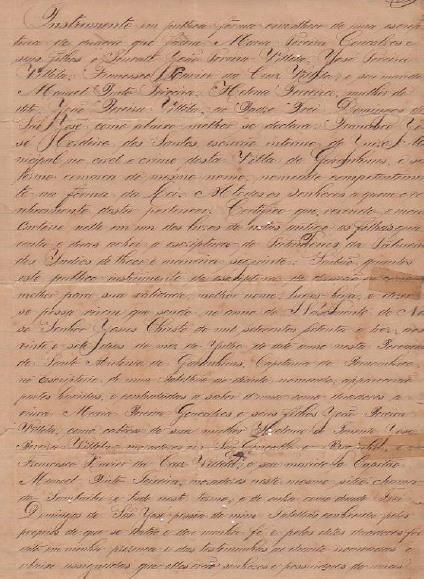 Instrumento em publica forma com o theor de uma escrip
tura de doação que fazem Maria Pereira Gonçalves e
seus filhos João Pereira Villela, José Pereira
Villela, Francisco Xavier da Cruz Villela, e seu marido
Manoel Pinto Teixeira, Helena Pereira, mulher do
dito João Pereira Villela, ao Padre Frei Domingos de
São José como abaixo melhor se declara. Francisco Jo
sé Cordeiro dos Santos escrivão interino do Juizo Mu
nicipal no civel e crime desta Villa de Garanhuns, e seu
termo comarca do mesmo nome, nomeado competentemen
te na forma da Lei. A todos os senhores a quem o co
nhecimento desta pertencer. Certifico que, revendo o meu
Cartorio nelle em um dos livros de notas antigo, as folhas
dos Indios do theor e maneira seguinte. Saibão quantos
este publico instrumento de escriptura de doação
melhor para sua validade, melhor nome, lugar haja, e
se possa virem que sendo no anno do Nascimento de Nos
so Senhor Jesus Christo de mil setecentos
vinte e sete dias do mez de Julho do dito anno nesta Povoação
de Santo Antonio de Garanhuns, Capitania de Pernambuco
no escriptorio de mim tabellião ao diante nomeado, apparecerão
partes havidas, e contratadas a saber d'uma como doadores a
viuva Maria Pereira Gonçalves e seus filhos João Pereira
Villela, como cabeça de sua mulher Helena
Pereira Villela
Francisco Xavier da Cruz Villela, e seu marido o Capitão
Manoel Pinto Teixeira, moradores neste mesmo sitio chama
do e tudo neste termo, e de outra como doado Frei
Domingos de São José pessôa de mim Tabellião conhecida pelos
proprios de que se trata e dou minha fé, e pelos ditos doadores foi
dito em minha presença e das testemunhas ao diante nomeadas e
abaixo assignadas que elles erão senhores e possuidores de